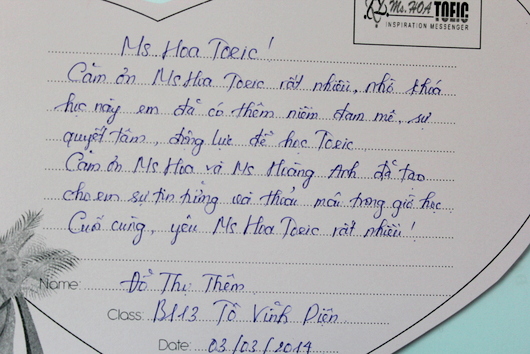 Ms. HOA TOEIC
INSPIRATION MESSENGER
Ms Hoa Toeic!
Cảm ơn Ms Hoa Toeic rất nhiều, nhờ khoá
học này em đã có thêm niềm đam mê, sự
quyết tâm, động lực để học Toeic
Cảm ơn Ms Hoa và Ms Hoàng Anh đã tạo
cho em sự tin tưởng và thoải mái trong giờ học.
Cuối cùng, yêu Ms Hoa Toeic rất nhiều!
Name: Đỗ Thị Thêm
Class: B113 Tô Vĩnh Diện
Date: 03/03/2014